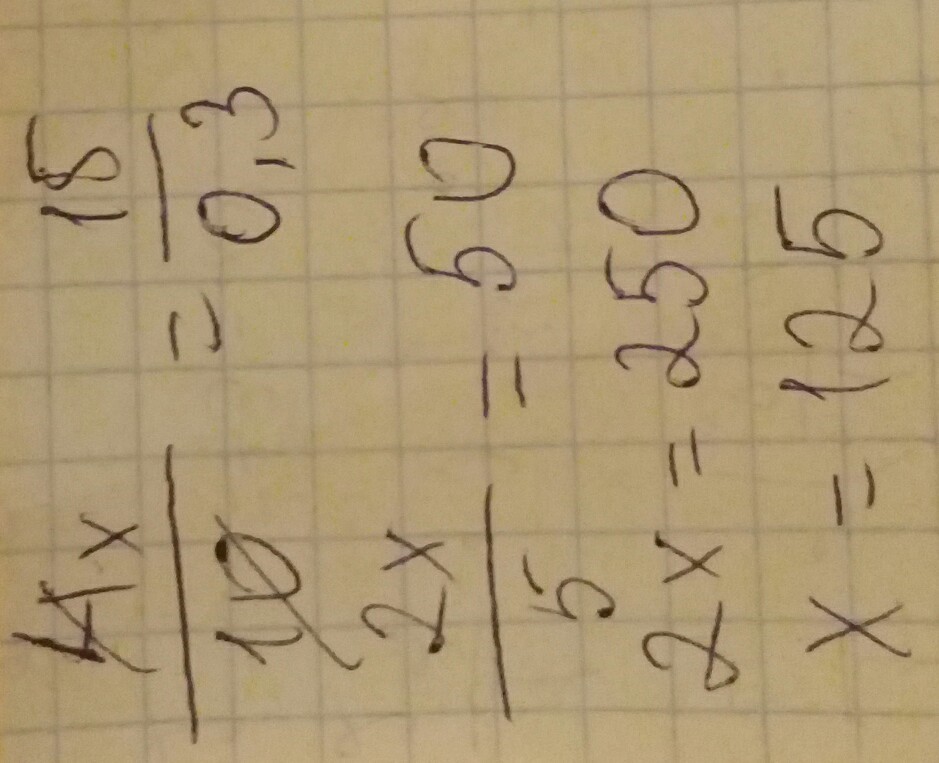 4x/10 = 15/0,3
2x/5 = 50
2x = 250
x = 125